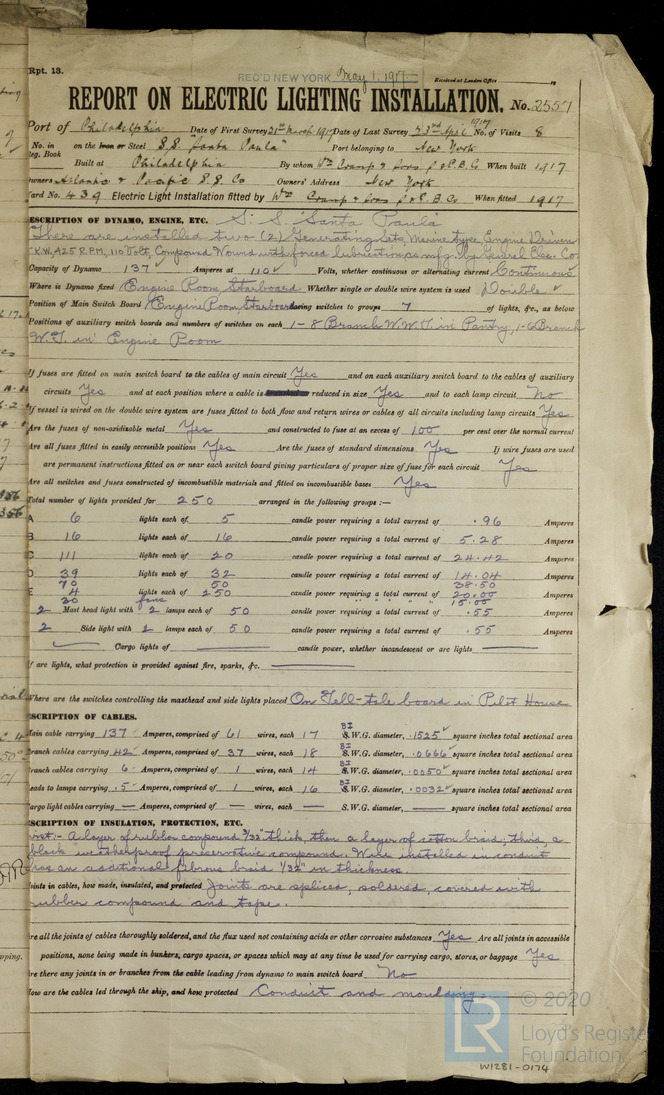 Rpt. 13.
REC'D NEW YORK May 1. 1917
Received at London Office
REPORT ON ELECTRIC LIGHTING INSTALLATION. No. 2557
Port of Philadelphia Date of First Survey 21st March 1917 Date of Last Survey 23rd April 1917 No. of Visits 8
No. in on the Iron or Steel S.S. "Santa Paula" Port belonging to New York
Reg. Book
Built at Philadelphia By whom Wm Cramp & Sons S & E. B. Co When built 1917
Owners Atlantic & Pacific S.S. Co Owners' Address New York
Yard No. 439 Electric Light Installation fitted by Wm Cramp & Sons S & E. B. Co When fitted 1917
DESCRIPTION OF DYNAMO, ENGINE, ETC. S. S. Santa Paula
There are installed two (2) Generating Sets, Marine type, Engine Driven
K.W. 425 R.P.M, 110 Volt, Compound Wound with forced lubrication as mfg. by General Elec. Co.
Capacity of Dynamo 137 Amperes at 110 Volts, whether continuous or alternating current Continuous
Where is Dynamo fixed Engine Room Starboard Whether single or double wire system is used Double
Position of Main Switch Board Engine Room Starboard having switches to groups 7 of lights, &c., as below
Positions of auxiliary switch boards and numbers of switches on each 1-8 Branch W.W.T. in Pantry, 1-6 Branch
W.T. in Engine Room
If fuses are fitted on main switch board to the cables of main circuit Yes and on each auxiliary switch board to the cables of auxiliary
circuits Yes and at each position where a cable is reduced in size Yes and to each lamp circuit No
If vessel is wired on the double wire system are fuses fitted to both flow and return wires or cables of all circuits including lamp circuits Yes
Are the fuses of non-oxidizable metal Yes and constructed to fuse at an excess of 100 per cent over the normal current
Are all fuses fitted in easily accessible positions Yes Are the fuses of standard dimensions Yes If wire fuses are used
are permanent instructions fitted on or near each switch board giving particulars of proper size of fuse for each circuit Yes
Are all switches and fuses constructed of incombustible materials and fitted on incombustible bases Yes
Total number of lights provided for 250 arranged in the following groups :—
A 6 lights each of 5 candle power requiring a total current of .96 Amperes
B 16 lights each of 16 candle power requiring a total current of 5.28 Amperes
C 111 lights each of 20 candle power requiring a total current of 24.42 Amperes
D 39 lights each of 32 candle power requiring a total current of 14.04 Amperes
70 50 38.50
E 4 lights each of 250 candle power requiring a total current of 20.00 Amperes
30 fans " " " " 15.00
2 Mast head light with 2 lamps each of 50 candle power requiring a total current of .55 Amperes
2 Side light with 2 lamps each of 50 candle power requiring a total current of .55 Amperes
Cargo lights of candle power, whether incandescent or arc lights
If arc lights, what protection is provided against fire, sparks, &c.
Where are the switches controlling the masthead and side lights placed On Tell-tale board in Pilot House
DESCRIPTION OF CABLES.
Main cable carrying 137 Amperes, comprised of 61 wires, each 17 BS S.W.G. diameter, .1525 square inches total sectional area
Branch cables carrying 42 Amperes, comprised of 37 wires, each 18 BS S.W.G. diameter, .0666 square inches total sectional area
Branch cables carrying 6 Amperes, comprised of 1 wires, each 14 BS S.W.G. diameter, .0050 square inches total sectional area
Leads to lamps carrying .5 Amperes, comprised of 1 wires, each 16 BS S.W.G. diameter, .0032 square inches total sectional area
Cargo light cables carrying — Amperes, comprised of — wires, each — S.W.G. diameter, — square inches total sectional area
DESCRIPTION OF INSULATION, PROTECTION, ETC.
First:- A layer of rubber compound 3/32" thick, then a layer of cotton braid, third, a
black weatherproof preservative compound. Wire installed in conduit
has an additional fibrous braid 1/32" in thickness.
Joints in cables, how made, insulated, and protected Joints are spliced, soldered, covered with
rubber compound and tape.
Are all the joints of cables thoroughly soldered, and the flux used not containing acids or other corrosive substances Yes Are all joints in accessible
positions, none being made in bunkers, cargo spaces, or spaces which may at any time be used for carrying cargo, stores, or baggage Yes
Are there any joints in or branches from the cable leading from dynamo to main switch board No
How are the cables led through the ship, and how protected Conduit and moulding.
© 2020
Lloyd's Register
Foundation
LR
W1281-0174